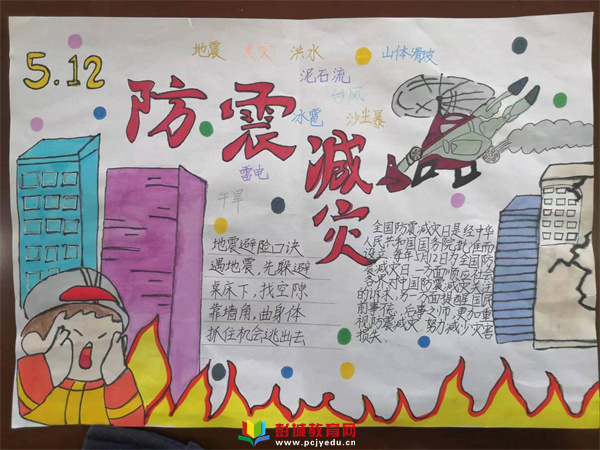 5.12
地震 火灾 洪水 山体滑坡
泥石流
台风
冰雹 沙尘暴
雷电
干旱
防震减灾
地震避险口诀
遇地震,先躲避
桌床下,找空隙
靠墙角,曲身体
抓住机会逃出去
全国防震减灾日是经中华
人民共和国国务院批准而
设立 每年5月12日为全国防
震减灾日一方面顺应社会
各界对中国防震减灾关注
的诉求,另一方面提醒国民
前事不忘,后事之师,更加重
视防震减灾 努力减少灾害
损失
彭城教育网
www.pcjyedu.cn